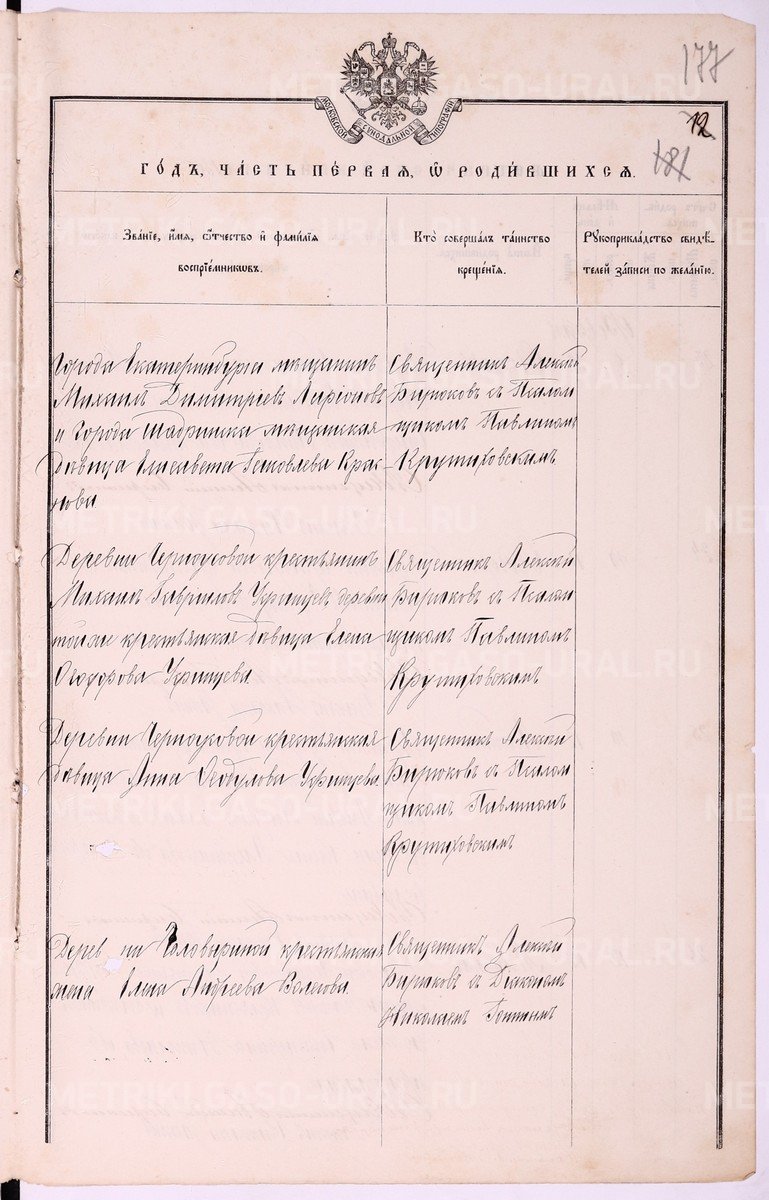 177
12
181
МОСКОВСКОЙ СУНОДАЛЬНОЙ ТИПОГРАФІИ
ГО́ДЪ, ЧА́СТЬ ПЕ́РВАЯ, Ѡ РОДИ́ВШИХСЯ.
Зва́нїе, и҆́мя, ѻ҆́тчество и҆ фами́лїя
воспрїе́мникѡвъ.
Кто̀ соверша́лъ та́инство
креще́нїя.
Рꙋкоприкла́дство свидѣ́-
телей за́писи по жела́нїю.
Города Екатеринбурга мѣщанинъ
Михаилъ Димитріевъ Ларіоновъ
и Города Шадринска мѣщанская
дѣвица Елисавета Крас-
нова.
Священникъ Алексѣй
Бирюковъ съ Псалом
щикомъ Павлиномъ
Крутиховскимъ
Деревни Черноусовой крестьянинъ
Михаилъ Гавриловъ деревни
той же крестьянская дѣвица Елена
Ѳеодорова
Священникъ Алексѣй
Бирюковъ съ Псалом
щикомъ Павлиномъ
Крутиховскимъ
Деревни Черноусовой крестьянская
дѣвица Анна
Священникъ Алексѣй
Бирюковъ съ Псалом
щикомъ Павлиномъ
Крутиховскимъ
Деревни Головыриной крестьянская
жена Елена Андреева
Священникъ Алексѣй
Бирюковъ съ Діакономъ
Николаемъ
METRIKI.GASO-URAL.RU